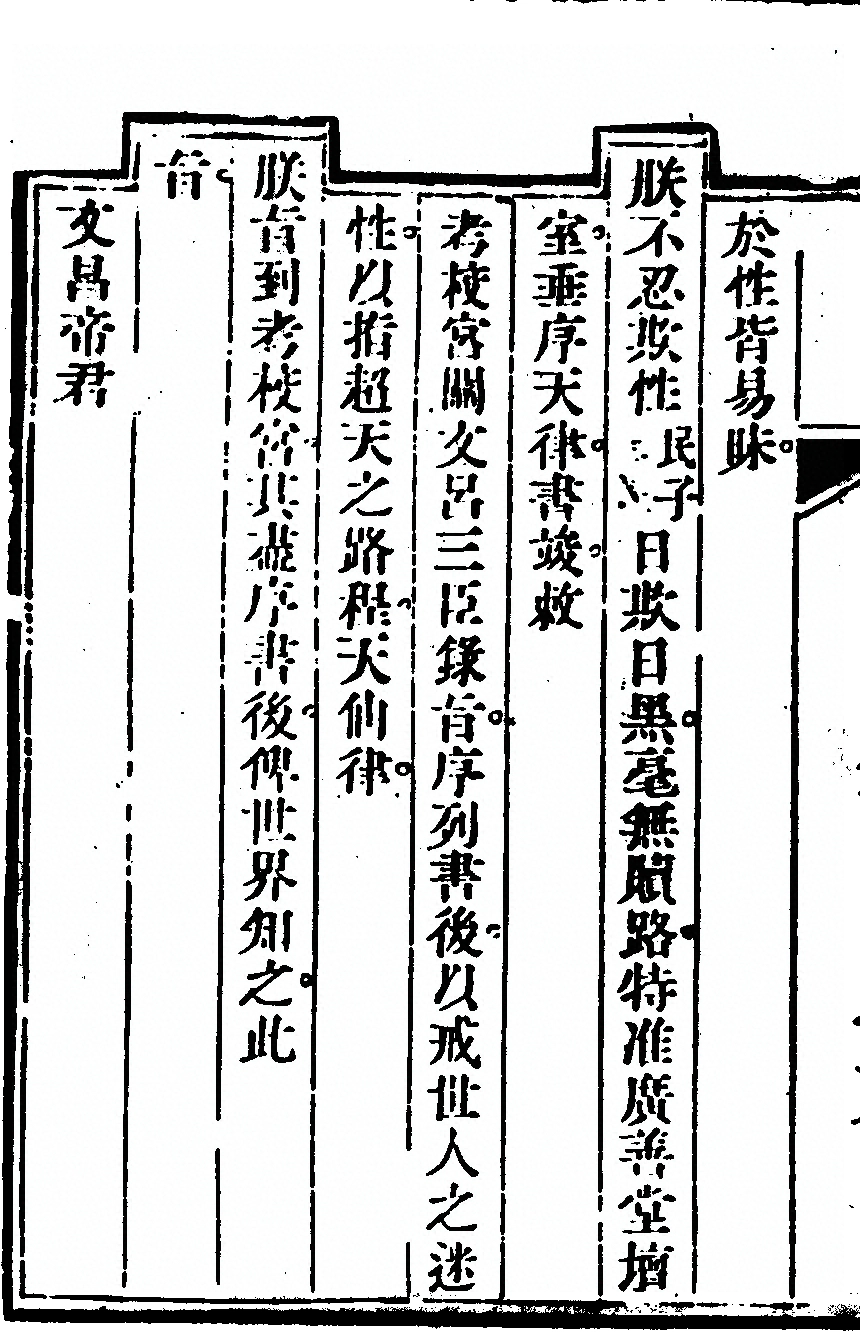 於性皆易昧
朕不忍欺性民子日欺日黑毫無贖路特准廣善堂壇
室垂序天律書竣敕
考校宮關文呂三臣錄旨序列書後以戒世人之迷
性以指超天之路程天仙律
朕旨到考校宮其盡序書後俾世界知之此
旨
文昌帝君